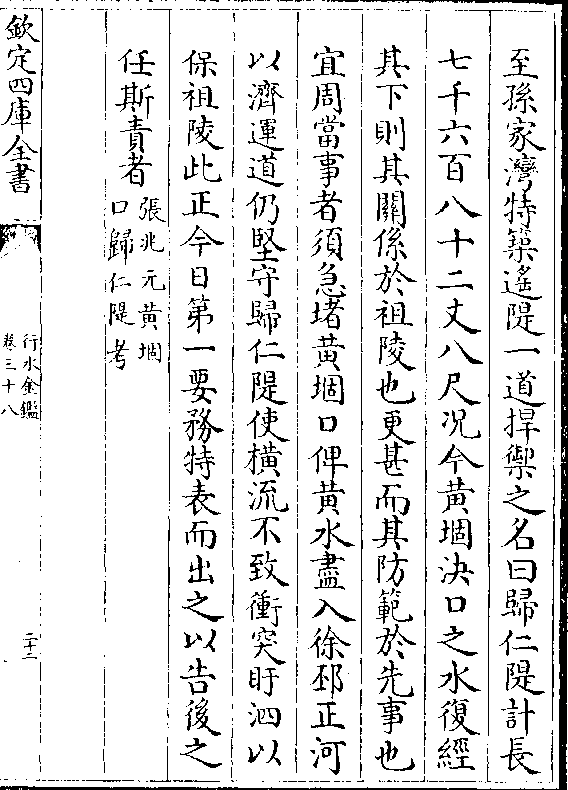 至孫家灣特築遙隄一道捍禦之名曰歸仁隄計長
七千六百八十二丈八尺况今黃堌決口之水復經
其下則其關係於祖陵也更甚而其防範於先事也
宜周當事者須急堵黃堌口俾黃水盡入徐邳正河
以濟運道仍堅守歸仁隄使橫流不致衝突盱泗以
保祖陵此正今日第一要務特表而出之以告後之
任斯責者
張兆元黃堌
口歸仁隄考
欽定四庫全書
行水金鑑
卷三十八
二十二